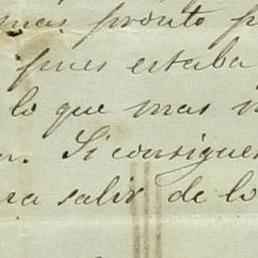 mas pronto p
pues estaba
lo que mas n
n. Si consigues
ra salir de lo